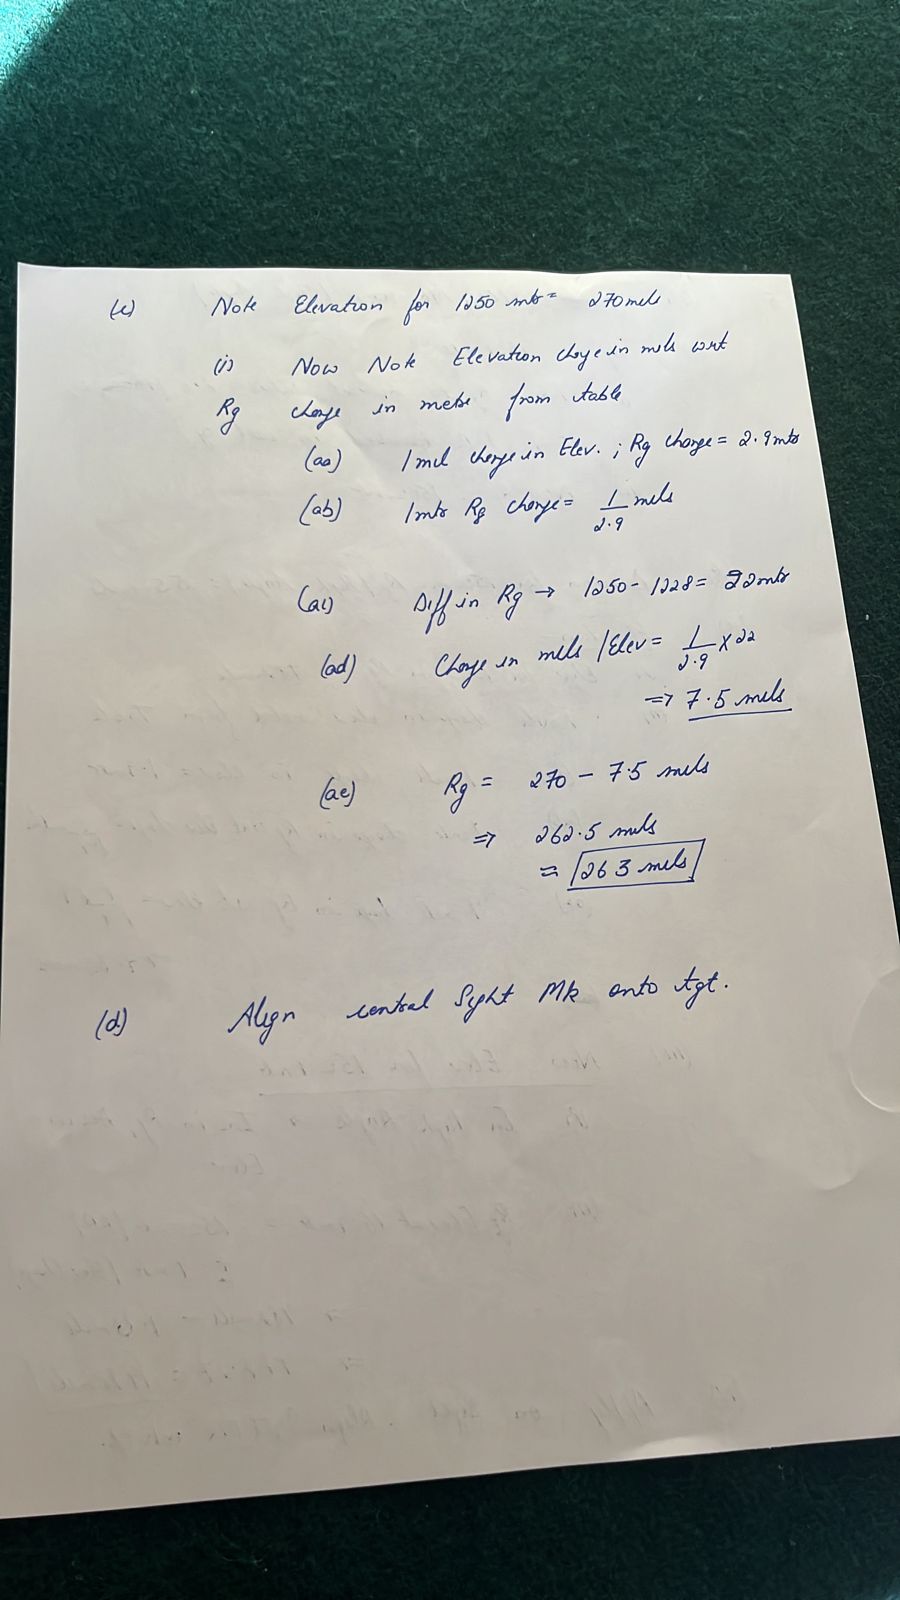 (c) Note Elevation for 1250 mts = 270 mils
(i) Now Note Elevation change in mils wrt
Rg change in metre from table
(aa) 1 mil change in Elev. ; Rg change = 2.9 mts
(ab) 1 mts Rg change = 1/2.9 mils
(ac) Diff in Rg → 1250 - 1228 = 22 mts
(ad) Change in mils / Elev = 1/2.9 x 22
=> 7.5 mils
(ae) Rg = 270 - 7.5 mils
=> 262.5 mils
≈ 263 mils
(d) Align central Sight Mk onto tgt.